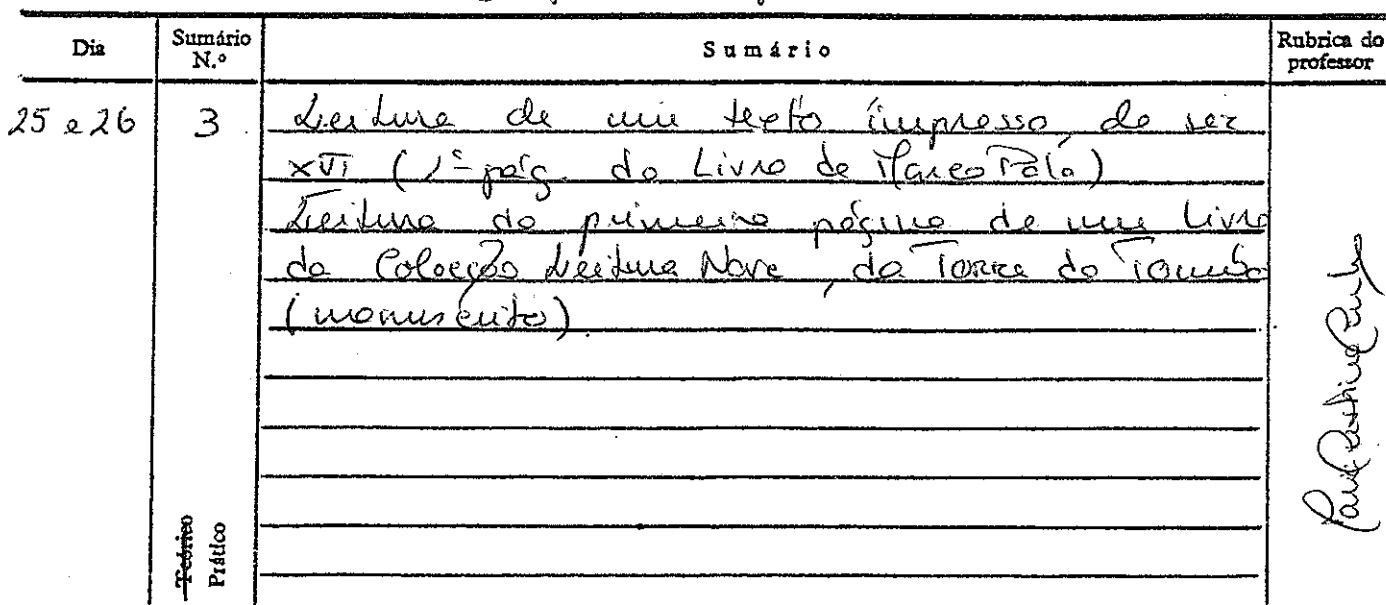 Dia
Sumário N.º
Sumário
Rubrica do professor
25 e 26
3
Leitura de um texto impresso, do séc
XVI (1ª pág. do Livro de Marco Polo)
Leitura da primeira página de um livro
da Colecção Leitura Nova, da Torre do Tombo
(manuscrito).
Teórico
Prático